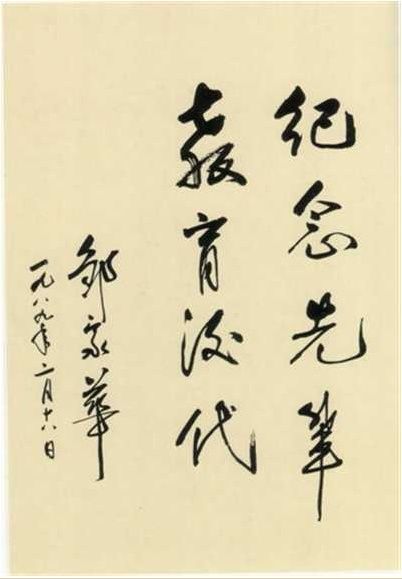 纪念先辈
教育後代
邹家華
一九八九年二月十八日